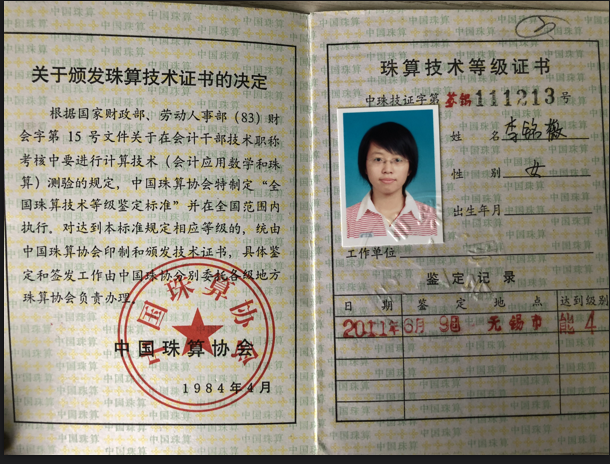 关于颁发珠算技术证书的决定
根据国家财政部、劳动人事部(83)财
会字第15号文件关于在会计干部技术职称
考核中要进行计算技术(会计应用数学和珠
算)测验的规定,中国珠算协会特制定“全
国珠算技术等级鉴定标准”并在全国范围内
执行。对达到本标准规定相应等级的,统由
中国珠算协会印制和颁发技术证书,具体鉴
定和签发工作由中国珠协分别委托各级地方
珠算协会负责办理。
中国珠算协会
中国珠算协会
1984年4月
珠算技术等级证书
中珠技证字第苏锡111213号
姓名李铭
性别女
出生年月
工作单位
鉴定记录
日期 鉴定地点 达到级别
2011年6月9日 无锡市 能4